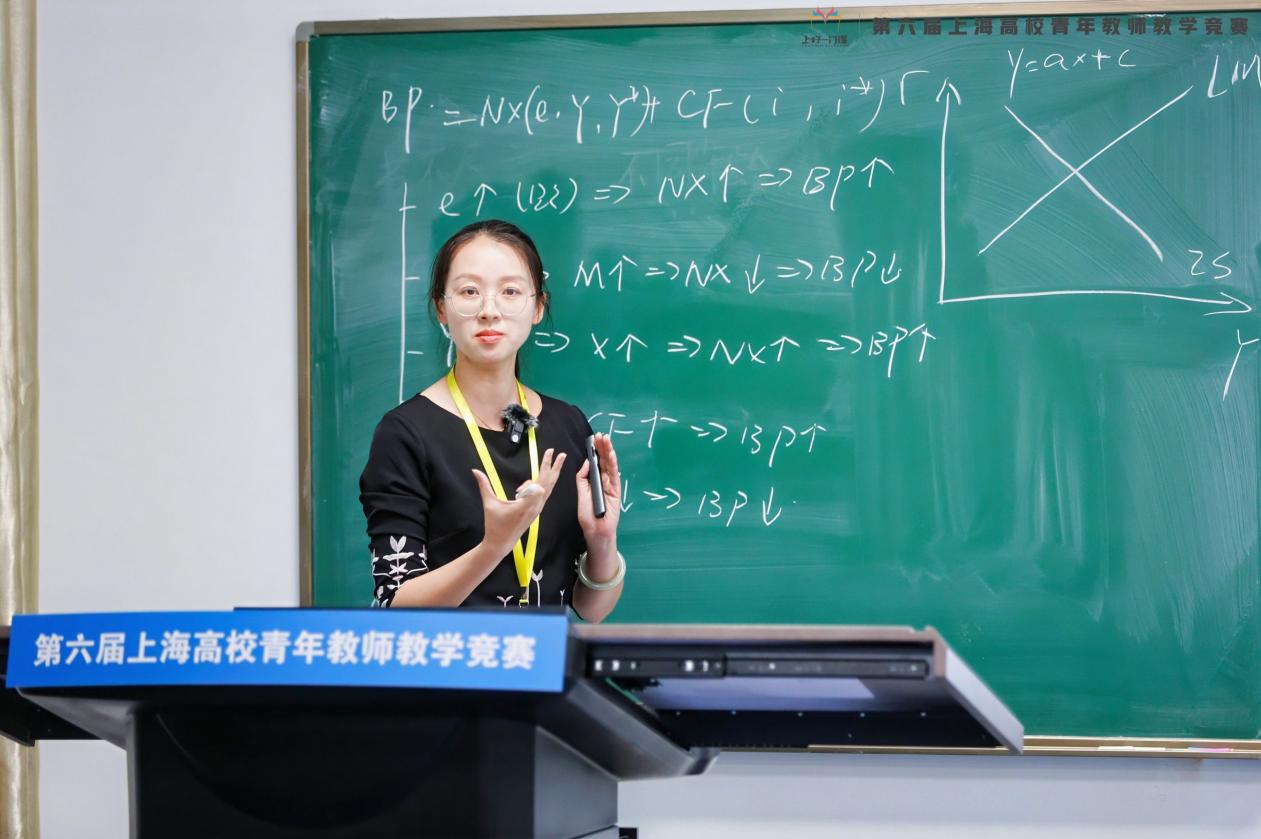 上好一门课
第六届上海高校青年教师教学竞赛
BP = NX(e, Y, Y*) + CF(i, i*)
e↑ (贬) => NX↑ => BP↑
M↑ => NX↓ => BP↓
=> X↑ => NX↑ => BP↑
CF↑ => BP↑
↓ => BP↓
Y=ax+c
LM
IS
Y
第六届上海高校青年教师教学竞赛